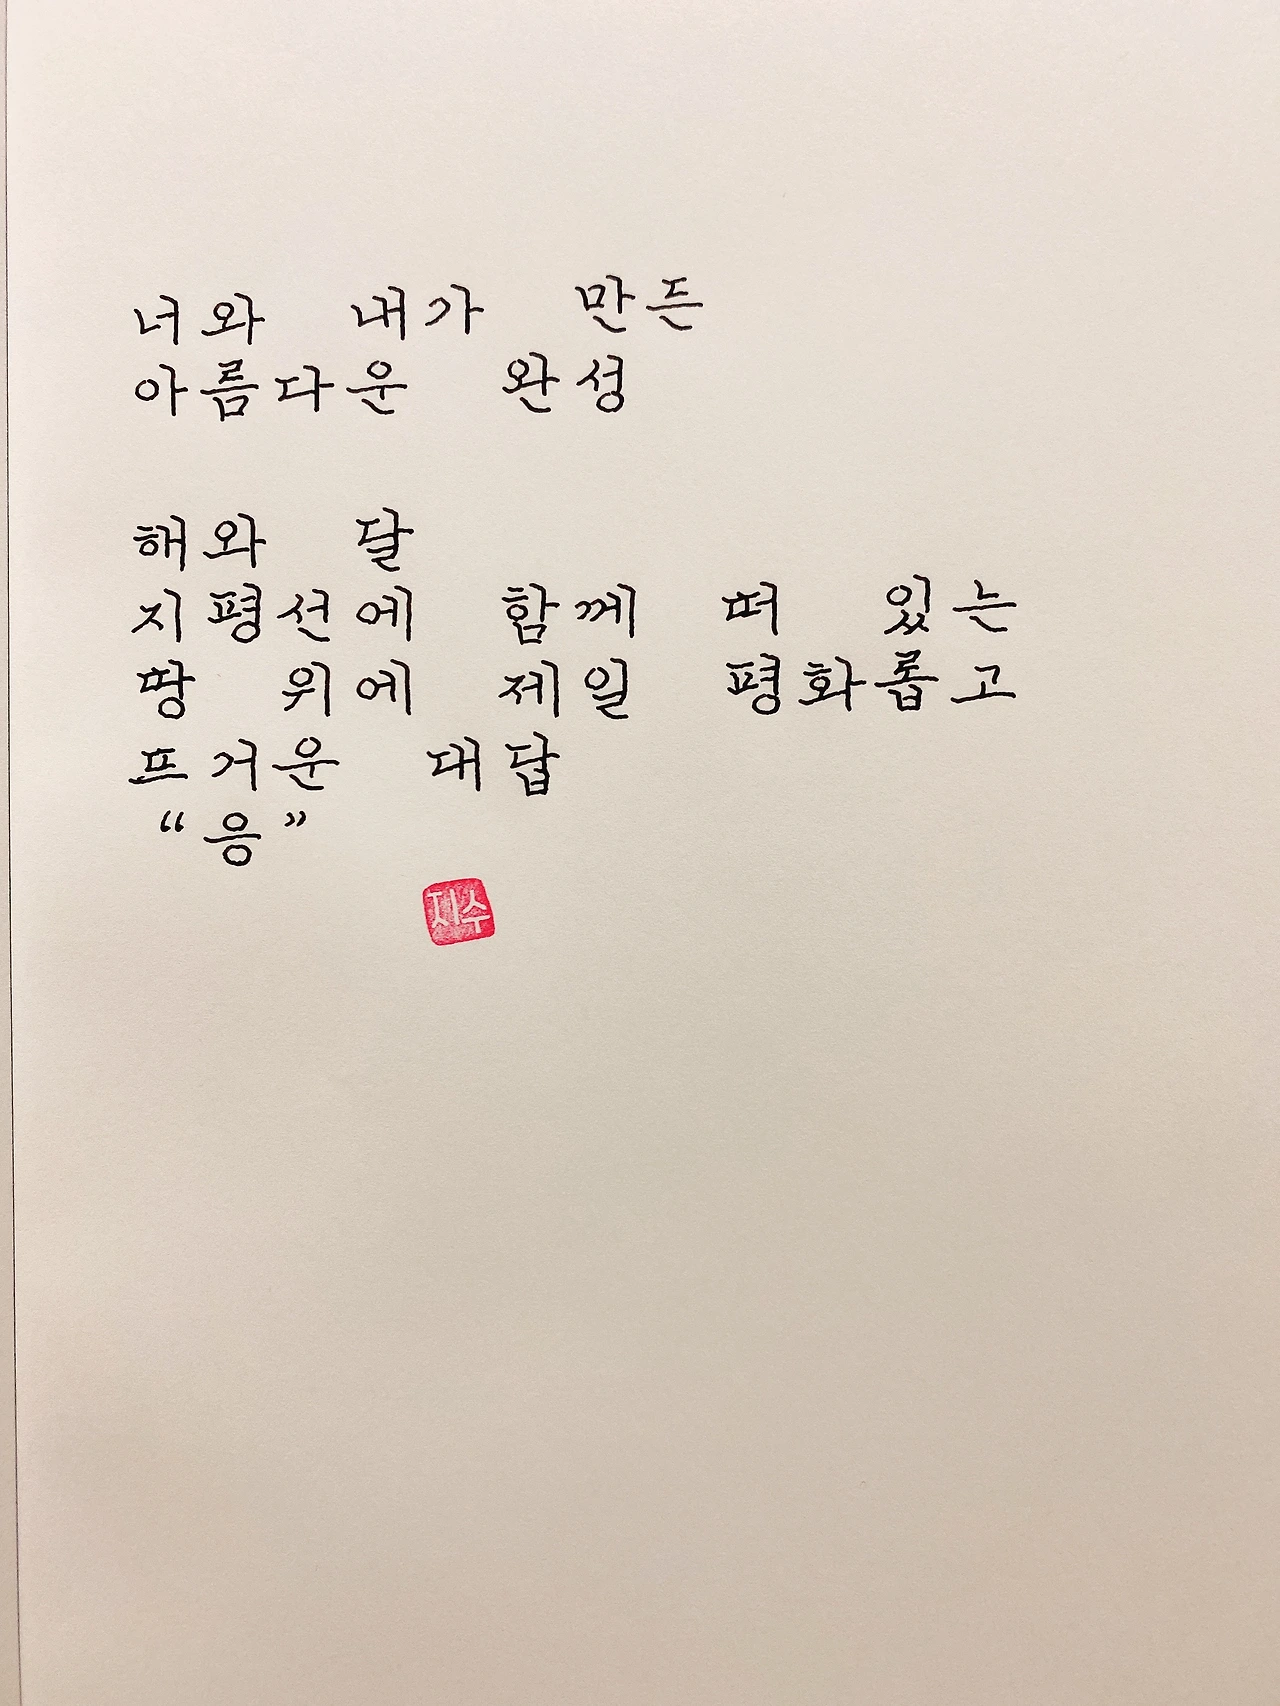 너와 내가 만든
아름다운 완성
해와 달
지평선에 함께 떠 있는
땅 위에 제일 평화롭고
뜨거운 대답
“응”
지수